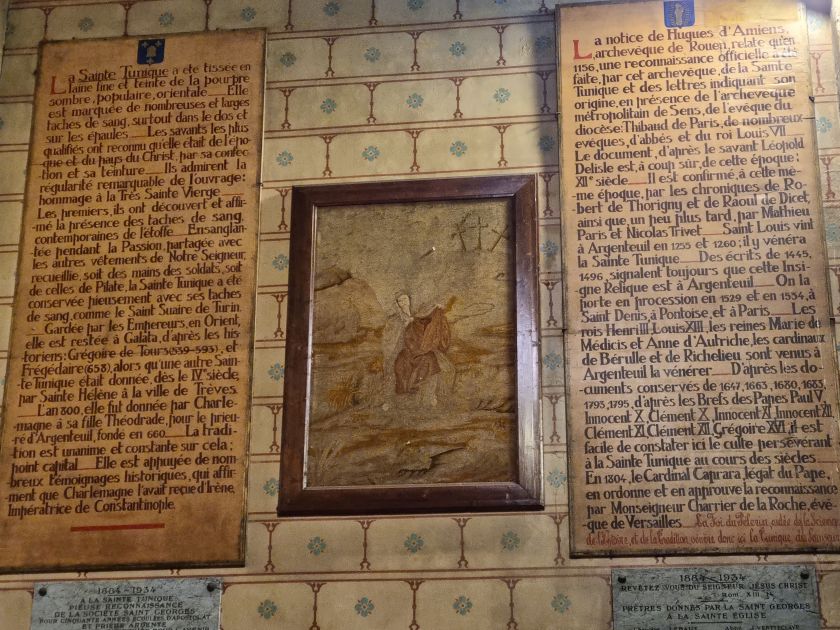 La Sainte Tunique a été tissée en
laine fine et teinte de la pourpre
sombre, populaire, orientale — Elle
est marquée de nombreuses et larges
taches de sang, surtout dans le dos et
sur les épaules — Les savants les plus
qualifiés ont reconnu qu'elle était de l'épo-
que et du pays du Christ, par sa confec-
tion et sa teinture — Ils admirent la
régularité remarquable de l'ouvrage:
hommage à la Très Sainte Vierge —
Les premiers, ils ont découvert et affir-
-mé la présence des taches de sang,
contemporaines de l'étoffe — Ensanglan-
tée pendant la Passion, partagée avec
les autres vêtements de Notre Seigneur,
recueillie, soit des mains des soldats, soit
de celles de Pilate, la Sainte Tunique a été
conservée pieusement avec ses taches
de sang, comme le Saint Suaire de Turin.
Gardée par les Empereurs, en Orient,
elle est restée à Galata, d'après les his
toriens: Grégoire de Tours (539-593), et
Frégédaire (658), alors qu'une autre Sain-
te Tunique était donnée, dès le IVe siècle,
par Sainte Hélène à la ville de Trèves.
L'an 800, elle fut donnée par Charle-
magne à sa fille Théodrade, pour le prieu-
ré d'Argenteuil, fondé en 660 — La tradi-
tion est unanime et constante sur cela;
point capital — Elle est appuyée de nom-
breux témoignages historiques, qui affir-
ment que Charlemagne l'avait reçue d'Irène,
Impératrice de Constantinople.
La notice de Hugues d'Amiens,
archevêque de Rouen, relate qu'en
1156, une reconnaissance officielle a été
faite, par cet archevêque, de la Sainte
Tunique et des lettres indiquant son
origine, en présence de l'archevêque
métropolitain de Sens, de l'évêque du
diocèse: Thibaud de Paris, de nombreux
évêques, d'abbés et du roi Louis VII
Le document, d'après le savant Léopold
Delisle est, à coup sûr, de cette époque:
XIIe siècle — Il est confirmé, à cette mê-
me époque, par les chroniques de Ro-
bert de Thorigny et de Raoul de Dicet,
ainsi que, un peu plus tard, par Mathieu
Paris et Nicolas Trivet — Saint Louis vint
à Argenteuil en 1255 et 1260; il y vénéra
la Sainte Tunique — Des écrits de 1445,
1496, signalent toujours que cette Insi-
gne Relique est à Argenteuil — On la
porte en procession en 1529 et en 1534, à
Saint Denis, à Pontoise, et à Paris — Les
rois Henri III, Louis XIII, les reines Marie de
Médicis et Anne d'Autriche, les cardinaux
de Bérulle et de Richelieu, sont venus à
Argenteuil la vénérer — D'après les do-
cuments conservés de 1647, 1663, 1680, 1683,
1793, 1795, d'après les Brefs des Papes Paul V,
Innocent X, Clément X, Innocent XI, Innocent XII,
Clément XI, Clément XII, Grégoire XVI, il est
facile de constater ici le culte persévérant
à la Sainte Tunique au cours des siècles —
En 1804, le Cardinal Caprara, légat du Pape,
en ordonne et en approuve la reconnaissance
par Monseigneur Charrier de la Roche, évê-
que de Versailles — La Foi du Pèlerin, aidée de la Science
de l'Histoire, et de la Tradition vénère donc ici la Tunique du Sauveur
1884-1934
A LA SAINTE TUNIQUE
PIEUSE RECONNAISSANCE
DE LA SOCIÉTÉ SAINT GEORGES
POUR CINQUANTE ANNÉES ÉCOULÉES D'APOSTOLAT
ET PRIÈRE ARDENTE
1884-1934
REVÊTEZ VOUS DU SEIGNEUR JÉSUS CHRIST
Rom. XIII, 14
PRÊTRES DONNÉS PAR LA SAINT GEORGES
A LA SAINTE ÉGLISE